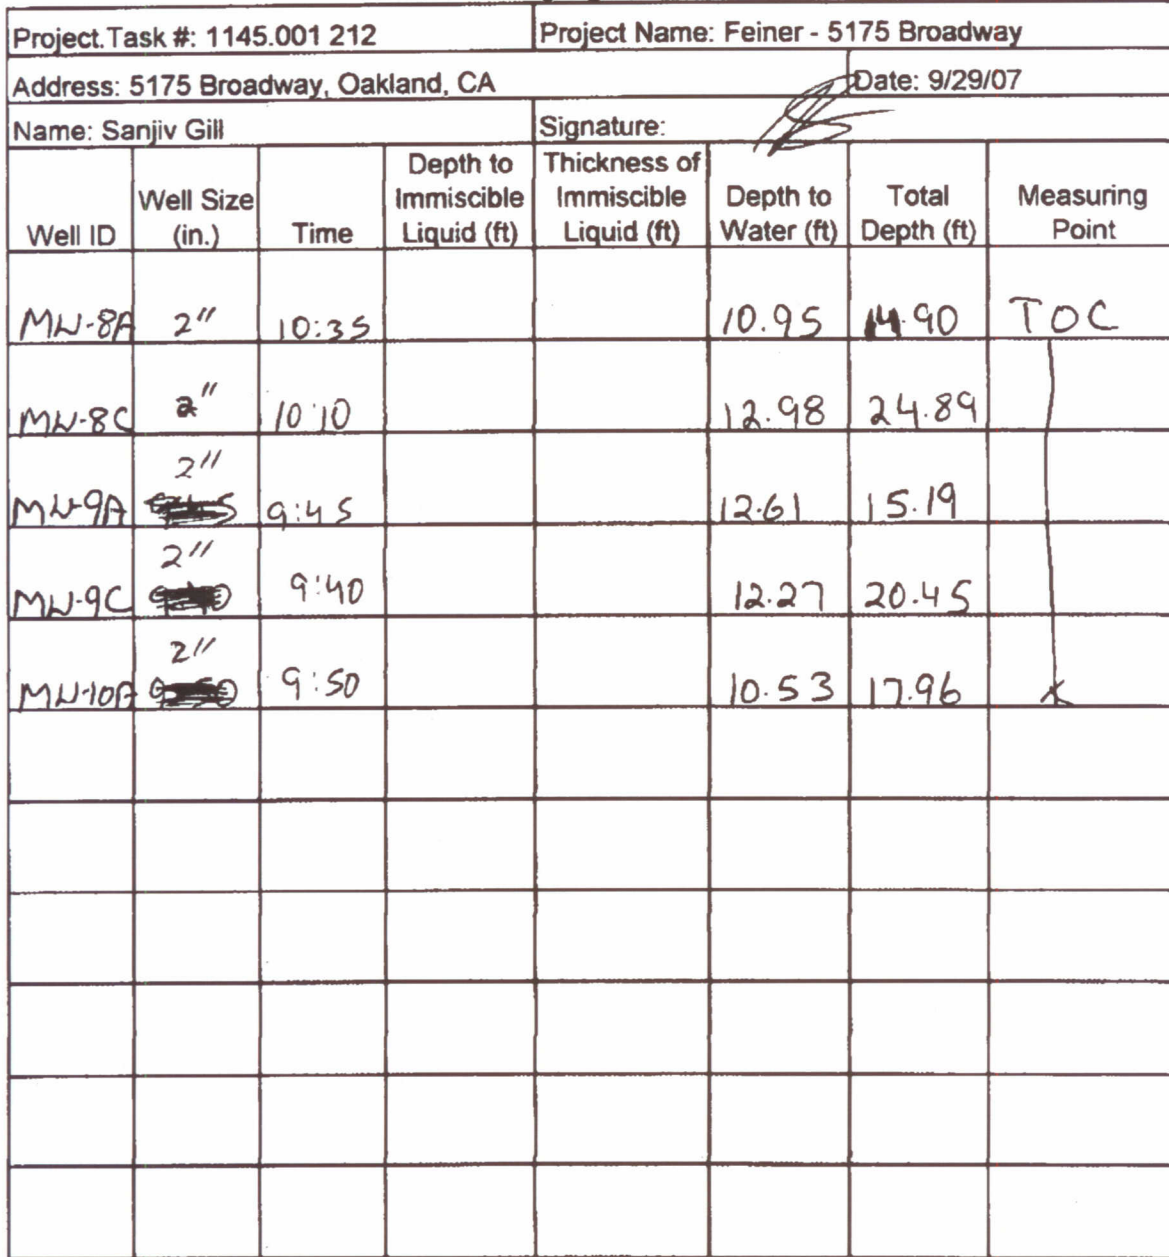 Project.Task #: 1145.001 212 Project Name: Feiner - 5175 Broadway
Address: 5175 Broadway, Oakland, CA Date: 9/29/07
Name: Sanjiv Gill Signature:
Well ID Well Size (in.) Time Depth to Immiscible Liquid (ft) Thickness of Immiscible Liquid (ft) Depth to Water (ft) Total Depth (ft) Measuring Point
MW-8A 2" 10:35 10.95 14.90 TOC
MW-8C 2" 10:10 12.98 24.89
MW-9A 2" 9:45 12.61 15.19
MW-9C 2" 9:40 12.27 20.45
MW-10A 2" 9:50 10.53 17.96